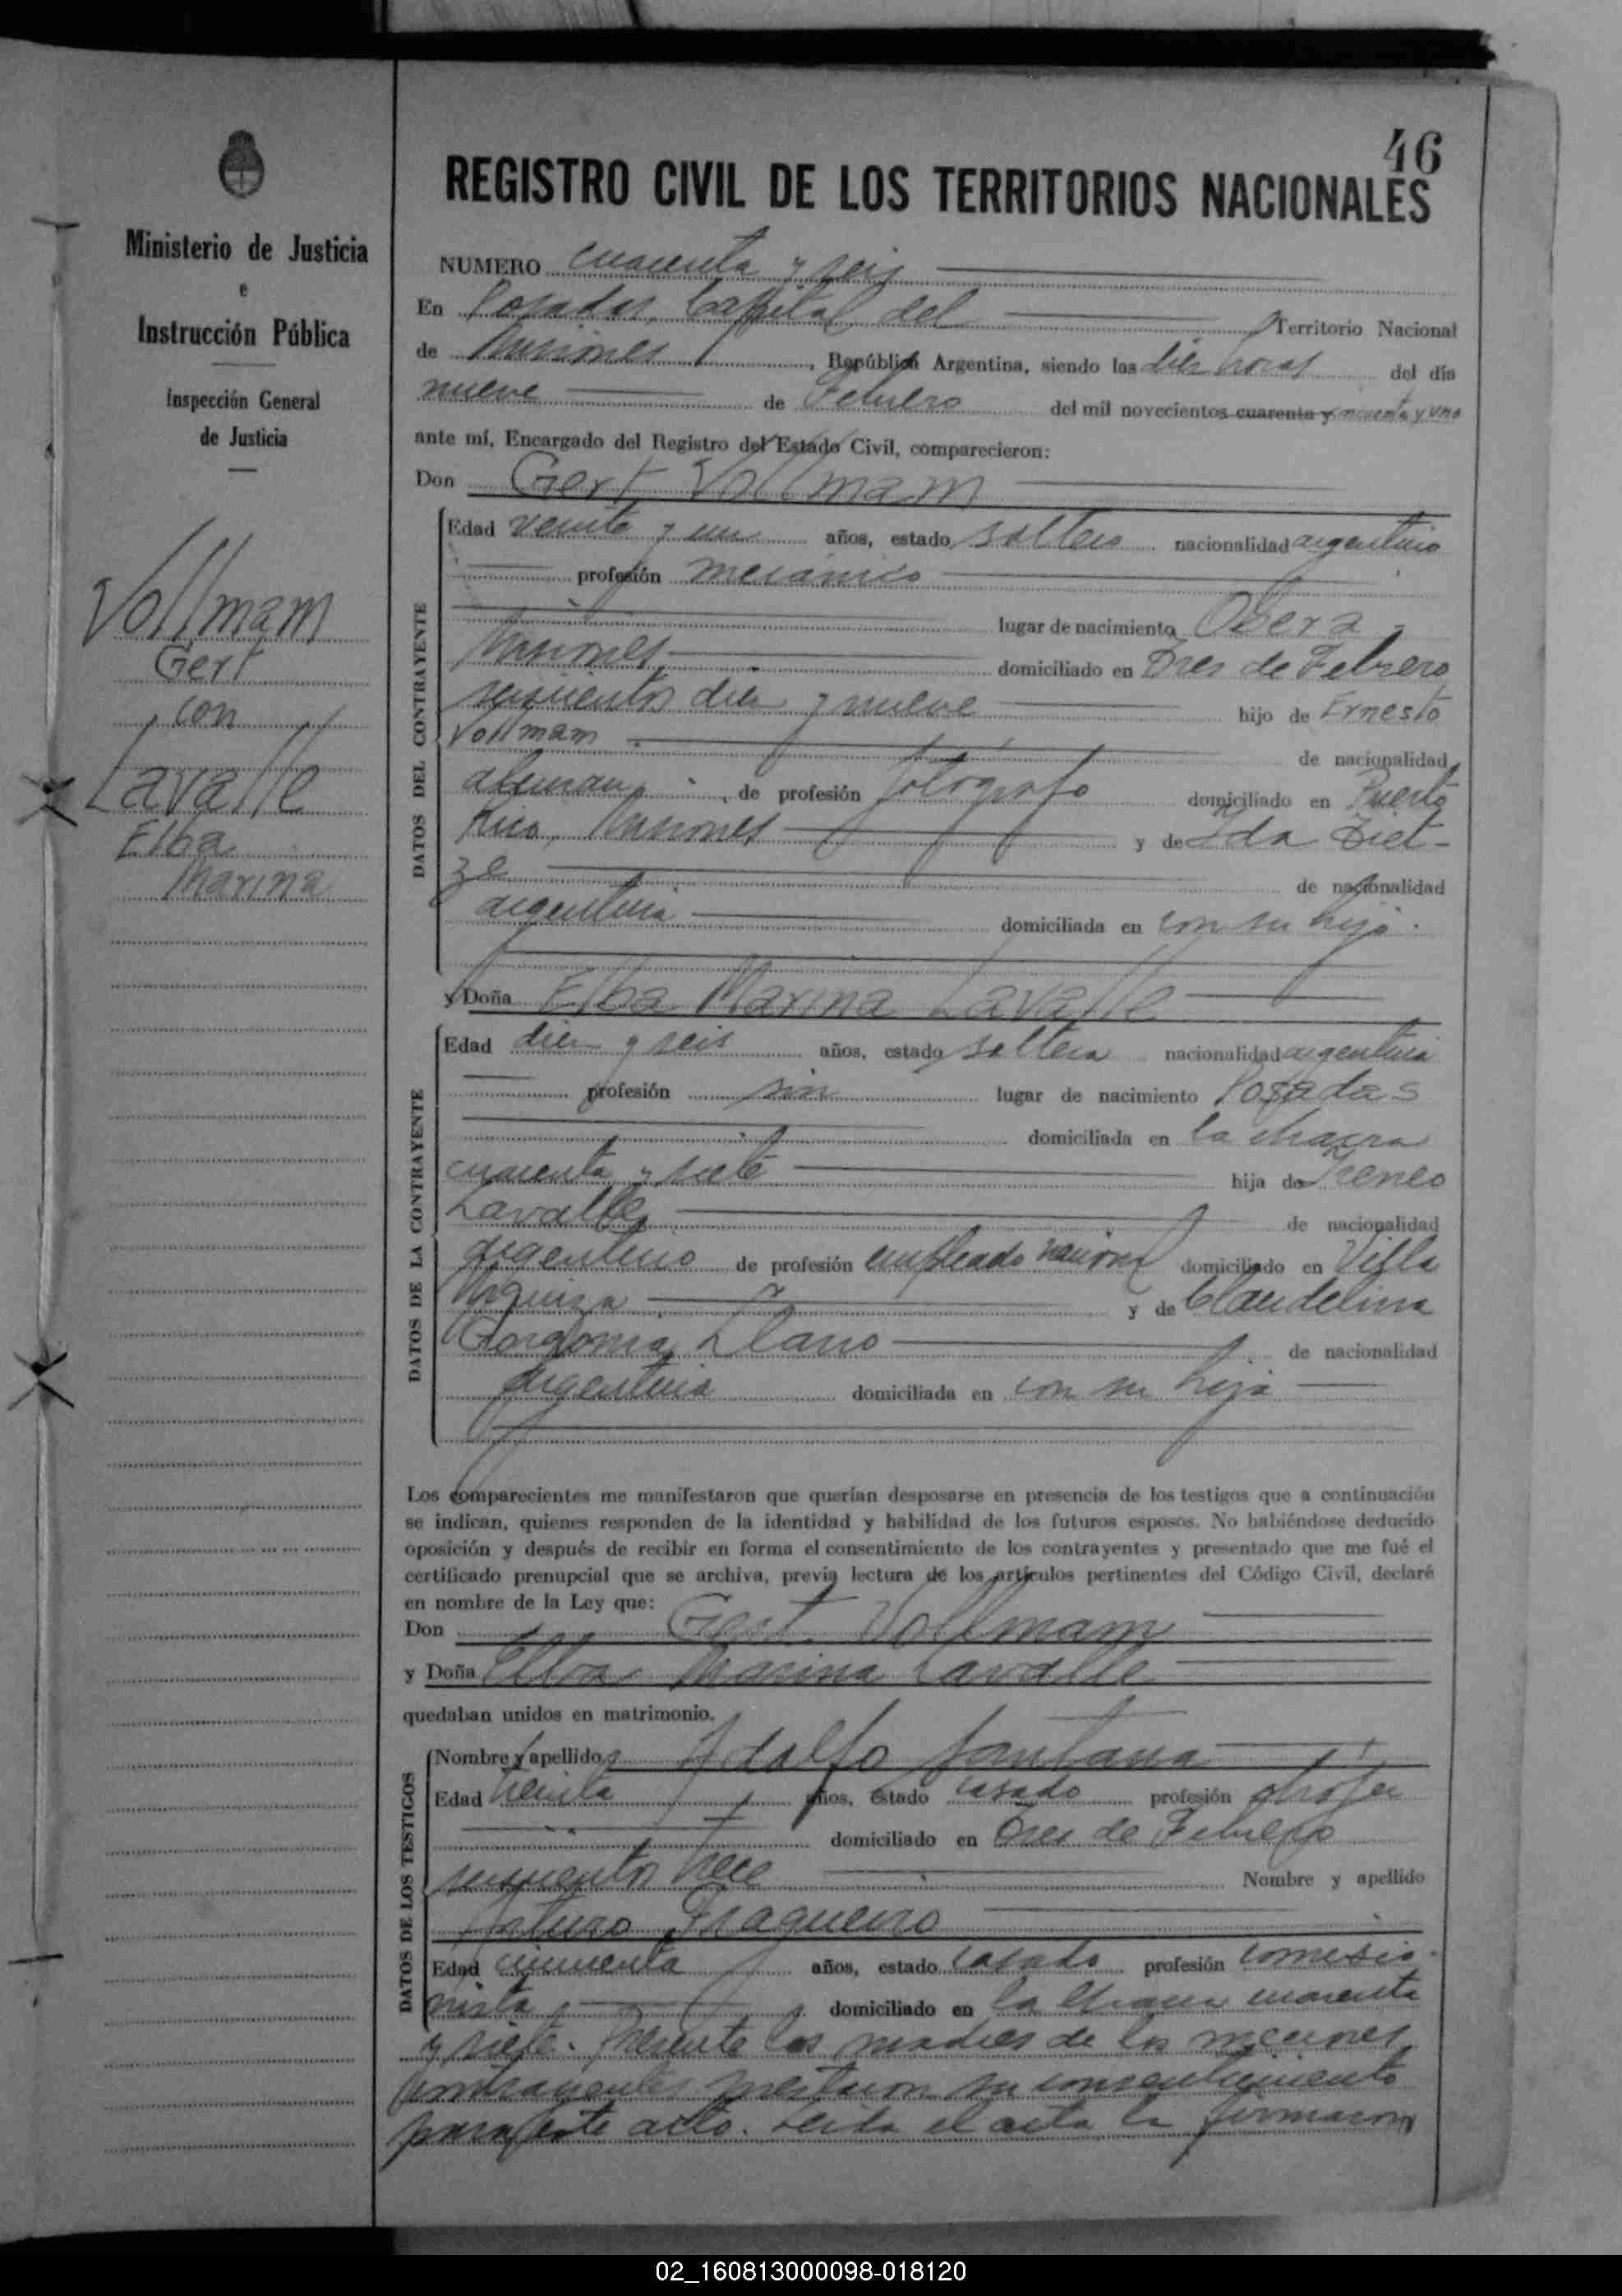 46
REGISTRO CIVIL DE LOS TERRITORIOS NACIONALES
Ministerio de Justicia
e
Instrucción Pública
Inspección General
de Justicia
Vollmam
Gert
con
Lavalle
Elba
Marina
NUMERO cuarenta y seis
En Posadas, Capital del Territorio Nacional
de Misiones, República Argentina, siendo las diez horas del día
nueve de Febrero del mil novecientos cuarenta y cincuenta y uno
ante mí, Encargado del Registro del Estado Civil, comparecieron:
Don Gert Vollmam
DATOS DEL CONTRAYENTE
Edad veinte y un años, estado soltero nacionalidad argentino
profesión mecánico
lugar de nacimiento Obera
Misiones domiciliado en Tres de Febrero
seiscientos diez y nueve hijo de Ernesto
Vollmam de nacionalidad
aleman, de profesión fotógrafo domiciliado en Puerto
Rico, Misiones y de Ida Diet-
ze de nacionalidad
argentina domiciliada en con su hijo.
y Doña Elba Marina Lavalle
DATOS DE LA CONTRAYENTE
Edad diez y seis años, estado soltera nacionalidad argentina
profesión sin lugar de nacimiento Posadas
domiciliada en la chacra
cuarenta y siete hija de Ireneo
Lavalle de nacionalidad
argentino de profesión empleado nacional domiciliado en Villa
Urquiza y de Claudelina
Gorgonia Llano de nacionalidad
argentina domiciliada en con su hija
Los comparecientes me manifestaron que querían desposarse en presencia de los testigos que a continuación
se indican, quienes responden de la identidad y habilidad de los futuros esposos. No habiéndose deducido
oposición y después de recibir en forma el consentimiento de los contrayentes y presentado que me fué el
certificado prenupcial que se archiva, previa lectura de los artículos pertinentes del Código Civil, declaré
en nombre de la Ley que:
Don Gert Vollmam
y Doña Elba Marina Lavalle
quedaban unidos en matrimonio.
DATOS DE LOS TESTIGOS
Nombre y apellido Adolfo Santana
Edad treinta años, estado casado profesión chofer
domiciliado en Tres de Febrero
seiscientos trece Nombre y apellido
Arturo Fragueiro
Edad cincuenta años, estado casado profesión comisio-
nista domiciliado en la chacra cuarenta
y siete. Presente las madres de los menores
contrayentes prestaron su consentimiento
para este acto. Leida el acta la firmaron
02_160813000098-018120